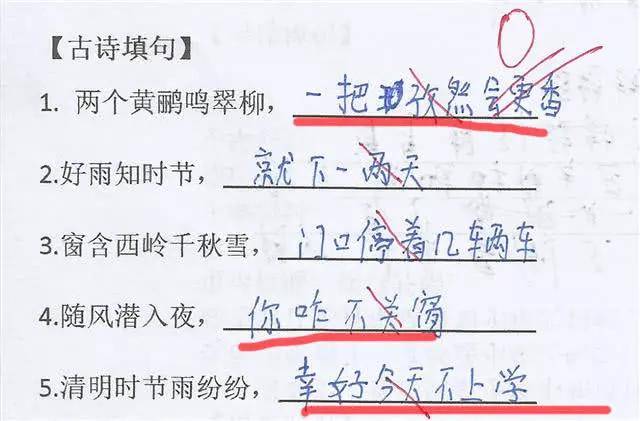 【古诗填句】
1. 两个黄鹂鸣翠柳，一把孜然会更香
2.好雨知时节，就下一两天
3.窗含西岭千秋雪，门口停着几辆车
4.随风潜入夜，你咋不关窗
5.清明时节雨纷纷，幸好今天不上学